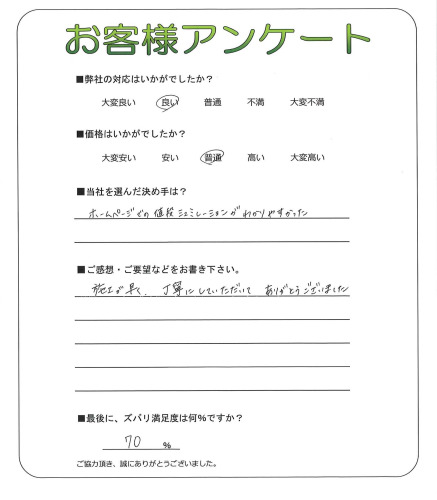 お客様アンケート
■弊社の対応はいかがでしたか？
大変良い 良い 普通 不満 大変不満
■価格はいかがでしたか？
大変安い 安い 普通 高い 大変高い
■当社を選んだ決め手は？
ホームページでの値段シュミレーションがわかりやすかった
■ご感想・ご要望などをお書き下さい。
施工が早く、丁寧にしていただいて ありがとうございました
■最後に、ズバリ満足度は何％ですか？
70 ％
ご協力頂き、誠にありがとうございました。